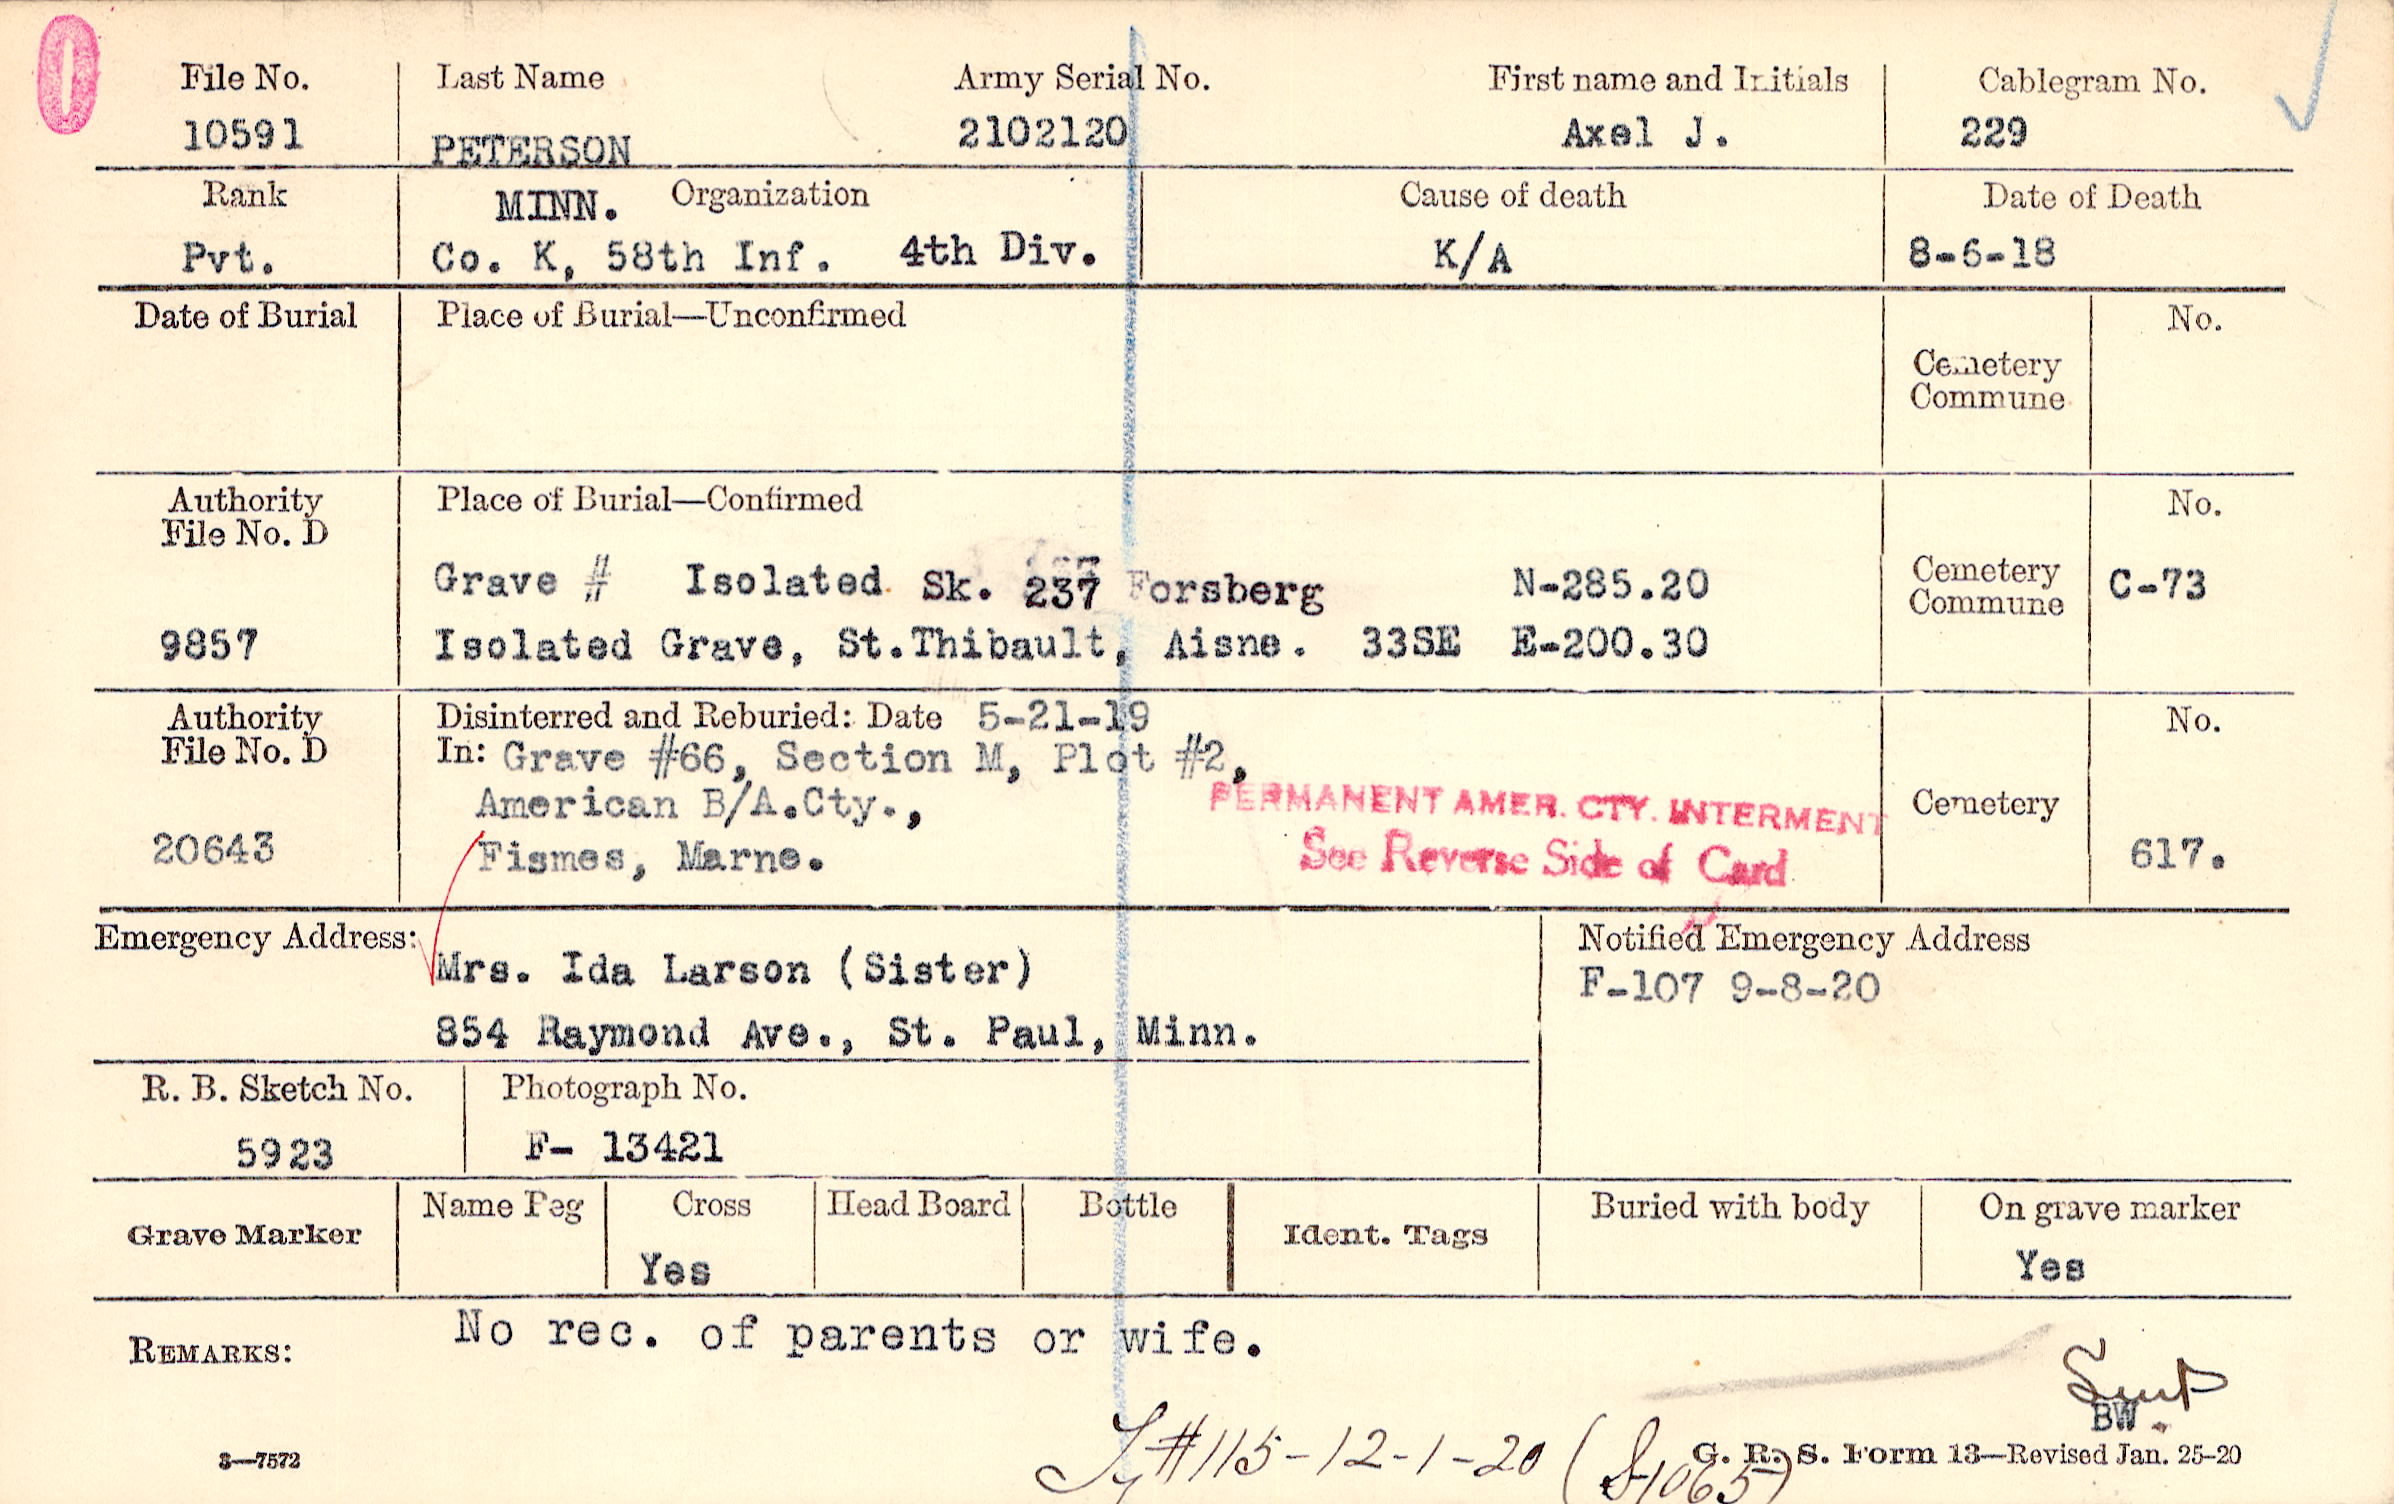 0
File No. Last Name Army Serial No. First name and Initials Cablegram No.
10591 PETERSON 2102120 Axel J. 229
Rank MINN. Organization Cause of death Date of Death
Pvt. Co. K, 58th Inf. 4th Div. K/A 8-6-18
Date of Burial Place of Burial—Unconfirmed No.
Cemetery
Commune
Authority Place of Burial—Confirmed No.
File No. D
Grave # Isolated Sk. 237 Forsberg N-285.20 Cemetery C-73
Commune
9857 Isolated Grave, St.Thibault, Aisne. 33SE E-200.30
Authority Disinterred and Reburied: Date 5-21-19 No.
File No. D In: Grave #66, Section M, Plot #2,
American B/A.Cty., PERMANENT AMER. CTY. INTERMENT Cemetery
20643 Fismes, Marne. See Reverse Side of Card 617.
Emergency Address: Notified Emergency Address
Mrs. Ida Larson (Sister) F-107 9-8-20
854 Raymond Ave., St. Paul, Minn.
R. B. Sketch No. Photograph No.
5923 F- 13421
Grave Marker Name Peg Cross Head Board Bottle Ident. Tags Buried with body On grave marker
Yes Yes
REMARKS: No rec. of parents or wife.
BW.
#115-12-1-20 (S1065)
3—7572 G. R. S. Form 13—Revised Jan. 25-20